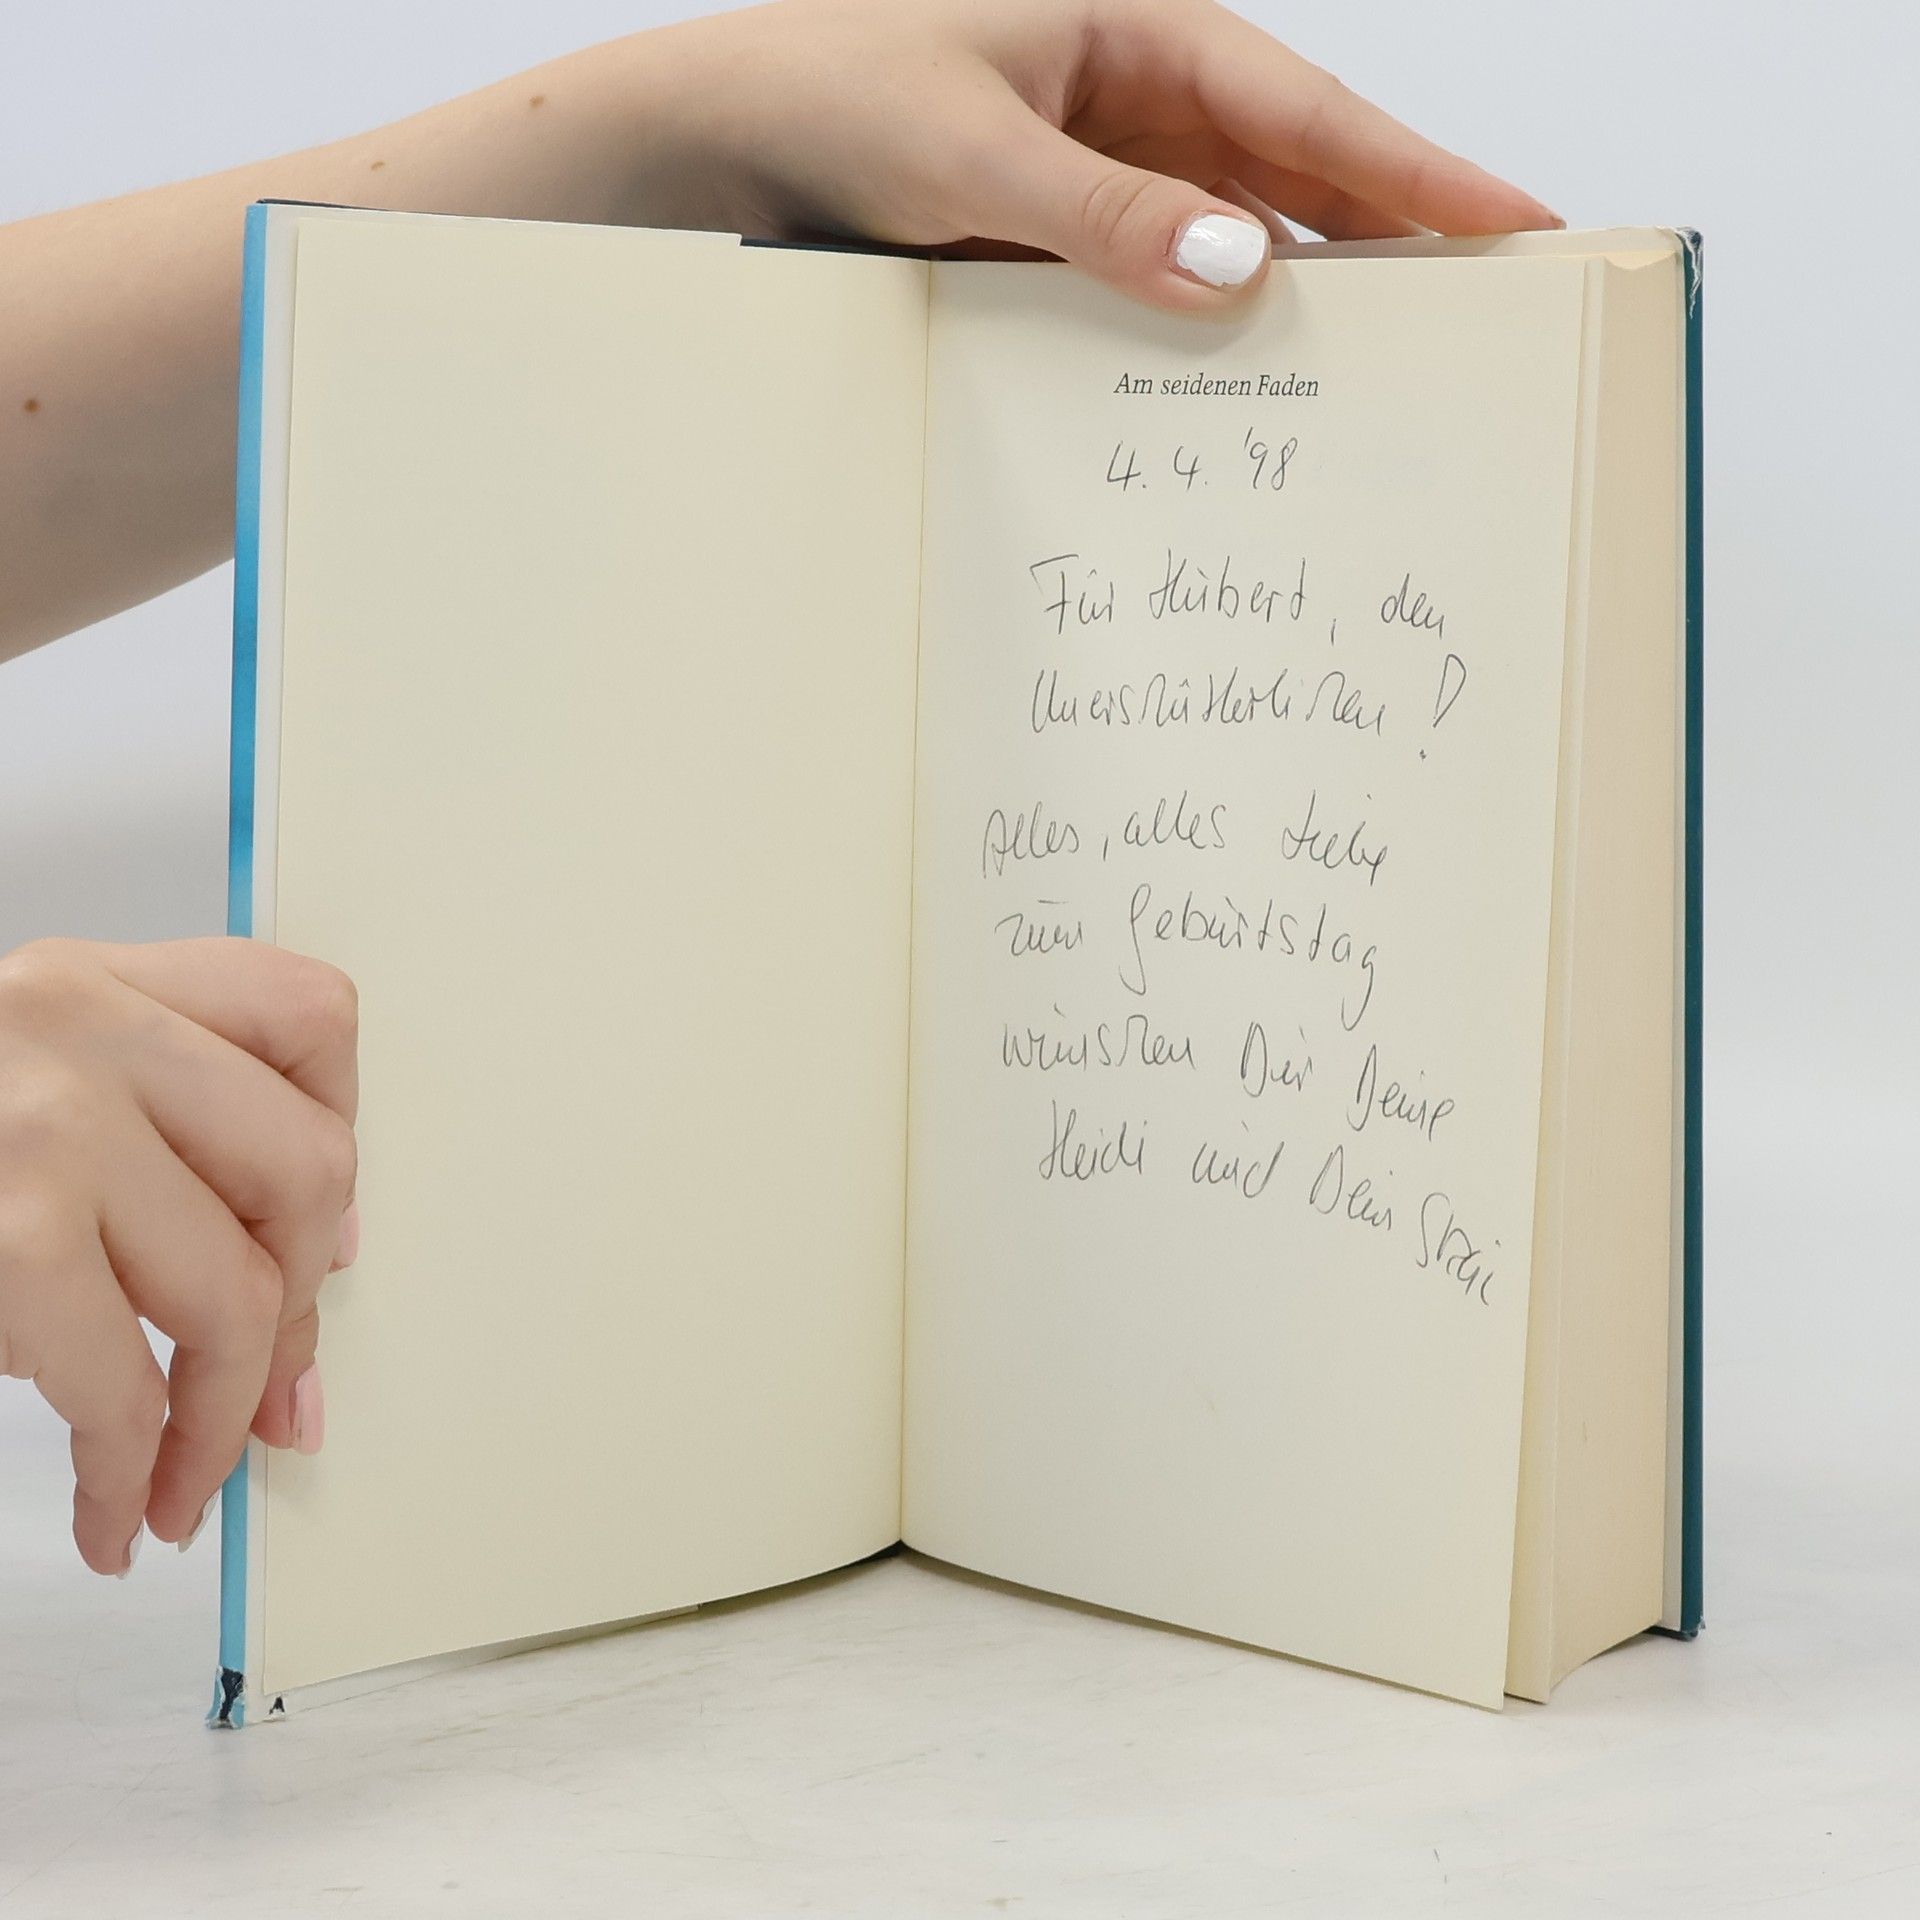 Am seidenen Faden
4. 4. '98
Für Hubert, den
Unerschütterlichen!
Alles, alles Liebe
zum Geburtstag
wünschen Dir Deine
Heidi und Dein